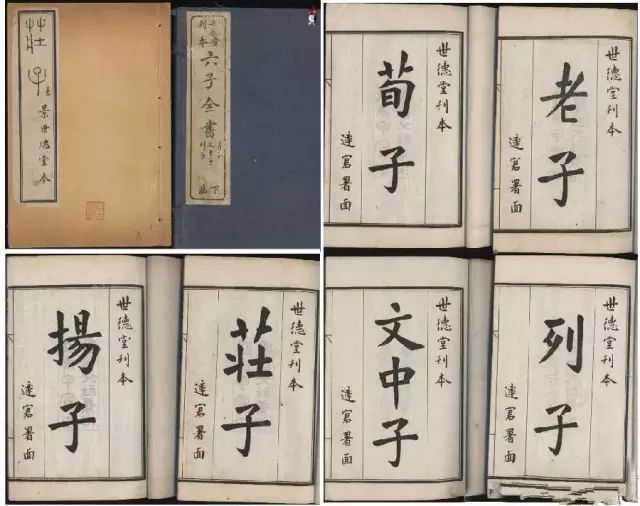 莊子
景世德堂本
六子全書
世德堂刊本
荀子
達窓署面
世德堂刊本
老子
達窓署面
世德堂刊本
揚子
達窓署面
世德堂刊本
莊子
達窓署面
世德堂刊本
文中子
達窓署面
世德堂刊本
列子
達窓署面